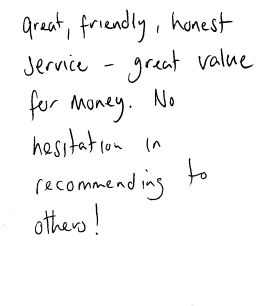 great, friendly, honest
service - great value
for money. No
hesitation in
recommending to
others!